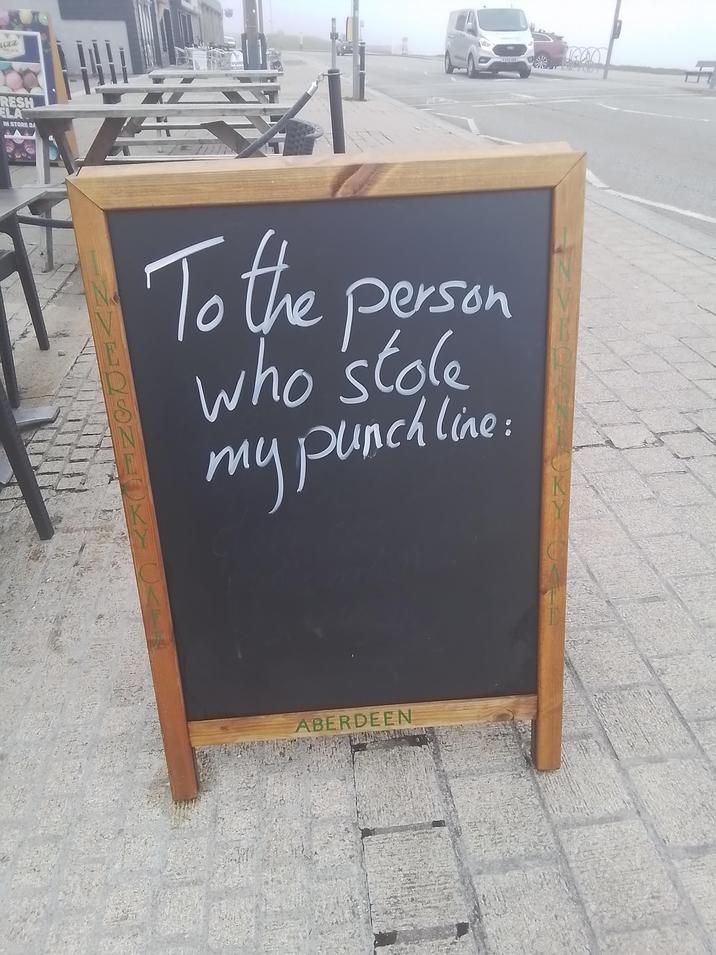 To the person
who stole
my punchline:
INVERSNECKY CAFE
INVERSNECKY CAFE
ABERDEEN
RESH
ELA
IN STORE